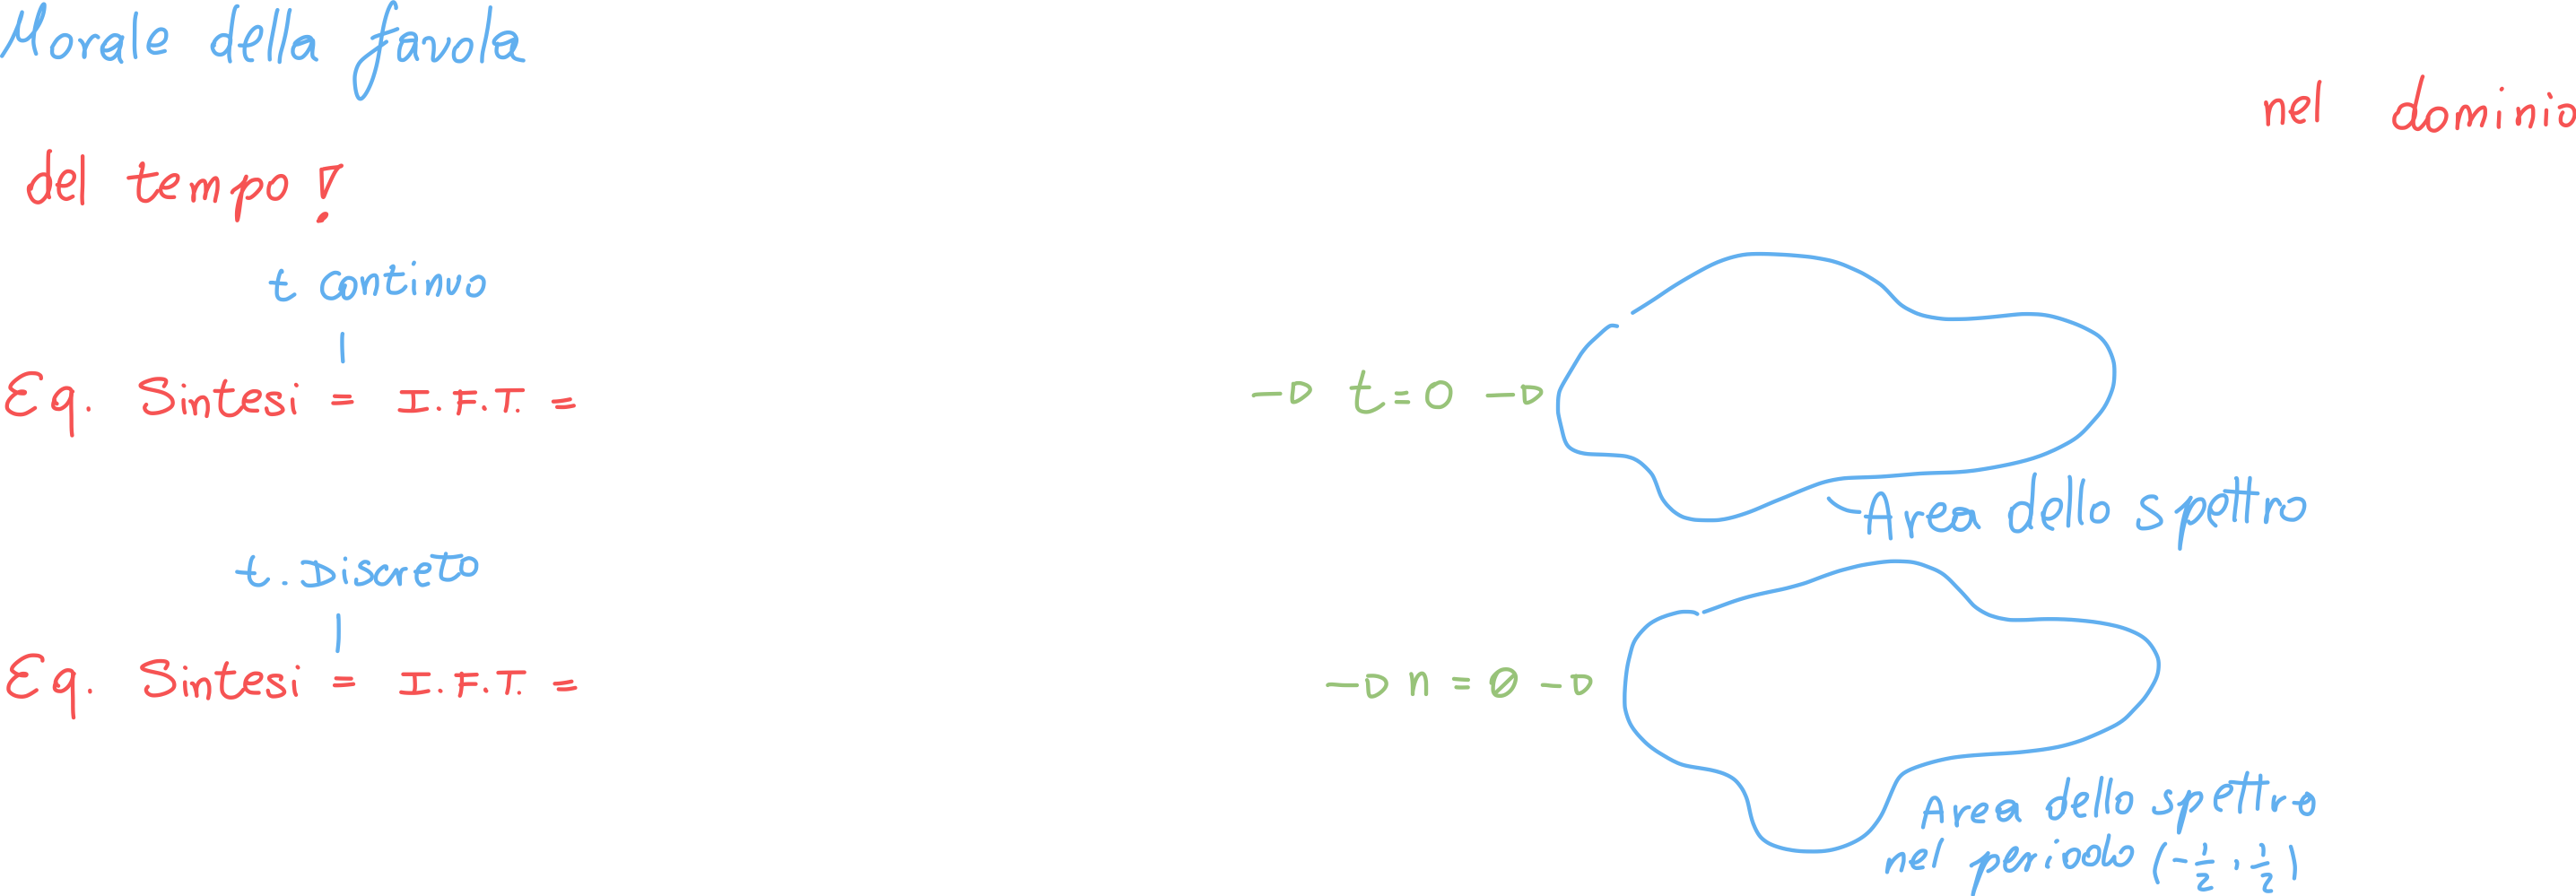 Morale della favola
nel dominio
del tempo!
t continuo
Eq. Sintesi = I.F.T. =
→ t=0 →
Area dello spettro
t. Discreto
Eq. Sintesi = I.F.T. =
→ n = 0 →
Area dello spettro
nel periodo (-1/2, 1/2)